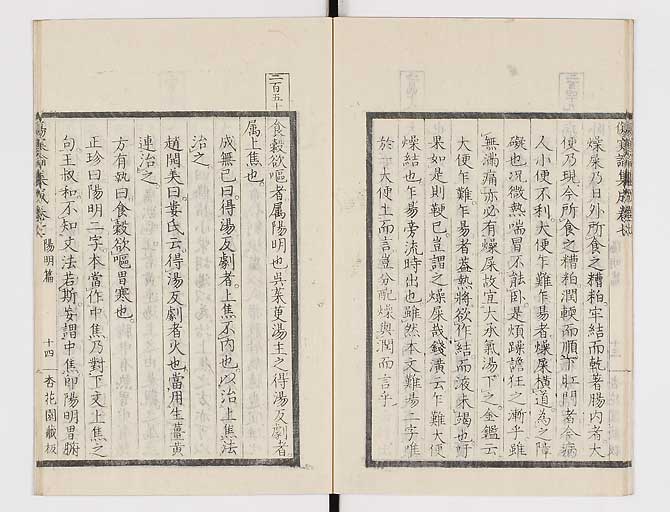 傷寒論集成卷七
燥屎乃日外所食之糟粕牢結而乾著腸内者大
便乃現今所食之糟粕潤輭而順下肛門者今病
人小便不利大便乍難乍易者燥屎橫道為之障
礙也况微熱喘冒不能卧是煩躁譫狂之漸乎雖
無滿痛亦必有燥屎故宜大承氣湯下之金鑑云
大便乍難乍易者蓋熱將欲作結而液未竭也
果如是則鞕已豈謂之燥屎哉錢潢云乍難大便
燥結也乍易旁流時出也雖然本文難易二字唯
於大便上而言豈分配燥與潤而言乎
二百五十
食穀欲嘔者属陽明也吳茱萸湯主之得湯反劇者
属上焦也
成無已曰得湯反劇者上焦不内也以治上焦法
治之
趙開美曰婁氏云得湯反劇者火也當用生薑黄
連治之
方有執曰食穀欲嘔胃寒也
正珍曰陽明二字本當作中焦乃對下文上焦之
句王叔和不知文法若斯妄謂中焦即陽明胃腑
傷寒論集成卷七 陽明篇 十四 杏花園藏板